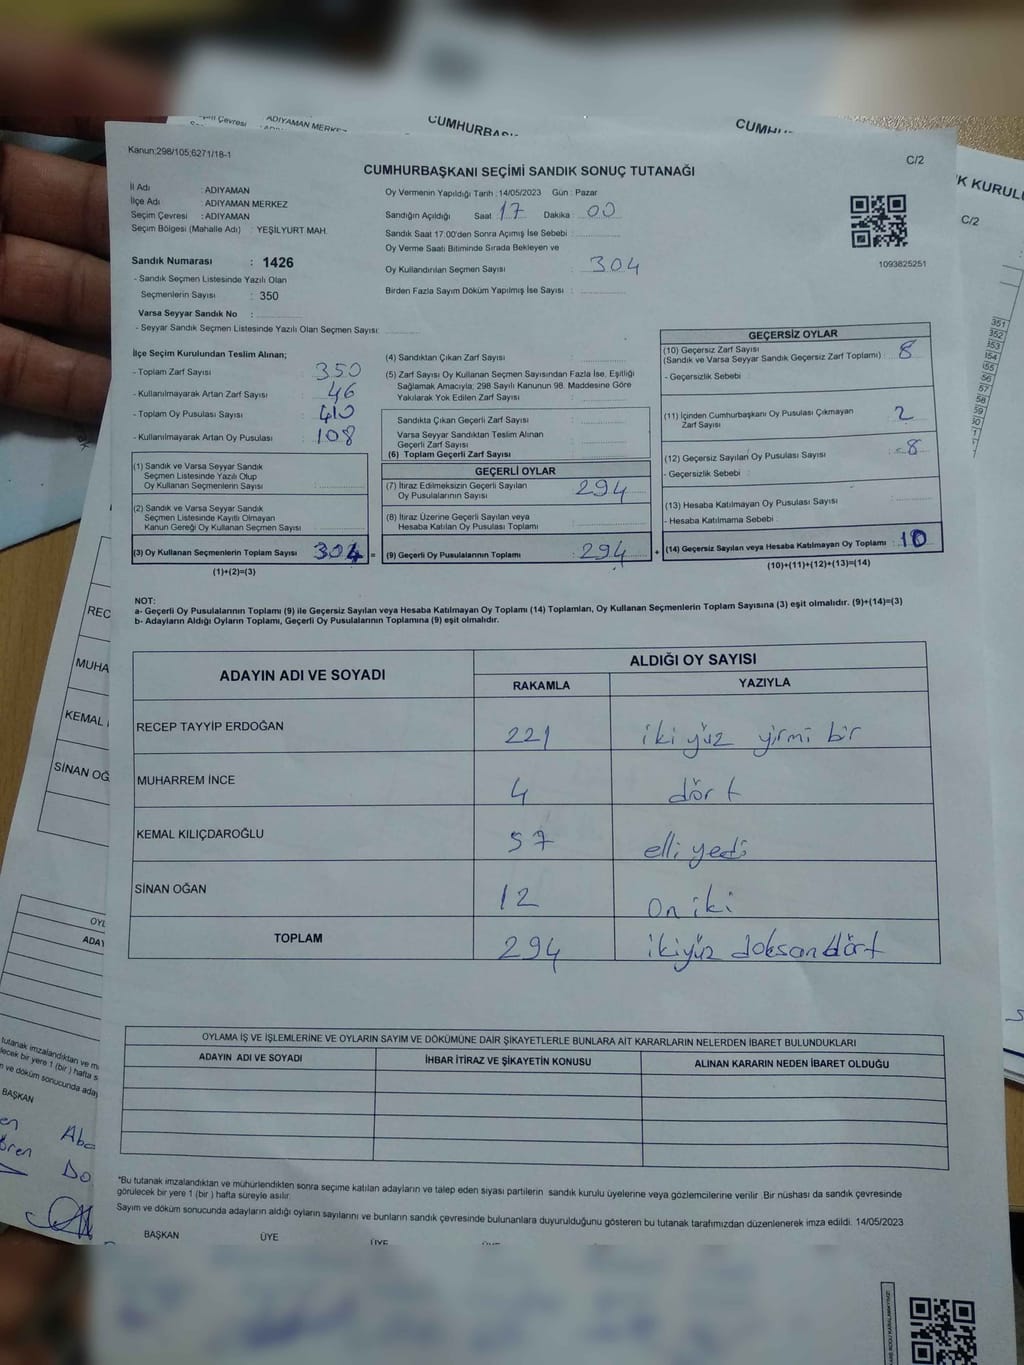 ADIYAMAN MERKEZ
CUMHURBA
CUMHU
Kanun:298/105;6271/18-1
C/2
CUMHURBAŞKANI SEÇİMİ SANDIK SONUÇ TUTANAĞI
K KURUL
C/2
İl Adı : ADIYAMAN
İlçe Adı : ADIYAMAN MERKEZ
Seçim Çevresi : ADIYAMAN
Seçim Bölgesi (Mahalle Adı) : YEŞİLYURT MAH.
Oy Vermenin Yapıldığı Tarih :14/05/2023 Gün : Pazar
Sandığın Açıldığı Saat 17 Dakika 00
Sandık Saat 17:00'den Sonra Açımış İse Sebebi :
Oy Verme Saati Bitiminde Sırada Bekleyen ve
Oy Kullandırılan Seçmen Sayısı : 304
Birden Fazla Sayım Döküm Yapılmış İse Sayısı :
1093825251
Sandık Numarası : 1426
- Sandık Seçmen Listesinde Yazılı Olan
Seçmenlerin Sayısı : 350
Varsa Seyyar Sandık No :
- Seyyar Sandık Seçmen Listesinde Yazılı Olan Seçmen Sayısı:
İlçe Seçim Kurulundan Teslim Alınan;
- Toplam Zarf Sayısı : 350
- Kullanılmayarak Artan Zarf Sayısı : 46
- Toplam Oy Pusulası Sayısı : 410
- Kullanılmayarak Artan Oy Pusulası : 108
(1) Sandık ve Varsa Seyyar Sandık
Seçmen Listesinde Yazılı Olup
Oy Kullanan Seçmenlerin Sayısı :
(2) Sandık ve Varsa Seyyar Sandık
Seçmen Listesinde Kayıtlı Olmayan
Kanun Gereği Oy Kullanan Seçmen Sayısı :
(3) Oy Kullanan Seçmenlerin Toplam Sayısı 304 =
(1)+(2)=(3)
(4) Sandıktan Çıkan Zarf Sayısı :
(5) Zarf Sayısı Oy Kullanan Seçmen Sayısından Fazla İse, Eşitliği
Sağlamak Amacıyla; 298 Sayılı Kanunun 98. Maddesine Göre
Yakılarak Yok Edilen Zarf Sayısı :
Sandıkta Çıkan Geçerli Zarf Sayısı :
Varsa Seyyar Sandıktan Teslim Alınan
Geçerli Zarf Sayısı :
(6) Toplam Geçerli Zarf Sayısı :
GEÇERLİ OYLAR
(7) İtiraz Edilmeksizin Geçerli Sayılan
Oy Pusulalarının Sayısı : 294
(8) İtiraz Üzerine Geçerli Sayılan veya
Hesaba Katılan Oy Pusulası Toplamı :
(9) Geçerli Oy Pusulalarının Toplamı : 294 +
GEÇERSİZ OYLAR
(10) Geçersiz Zarf Sayısı
(Sandık ve Varsa Seyyar Sandık Geçersiz Zarf Toplamı) : 8
- Geçersizlik Sebebi :
(11) İçinden Cumhurbaşkanı Oy Pusulası Çıkmayan
Zarf Sayısı : 2
(12) Geçersiz Sayılan Oy Pusulası Sayısı : -8
- Geçersizlik Sebebi :
(13) Hesaba Katılmayan Oy Pusulası Sayısı :
- Hesaba Katılmama Sebebi :
(14) Geçersiz Sayılan veya Hesaba Katılmayan Oy Toplamı : 10
(10)+(11)+(12)+(13)=(14)
NOT:
a- Geçerli Oy Pusulalarının Toplamı (9) ile Geçersiz Sayılan veya Hesaba Katılmayan Oy Toplamı (14) Toplamları, Oy Kullanan Seçmenlerin Toplam Sayısına (3) eşit olmalıdır. (9)+(14)=(3)
b- Adayların Aldığı Oyların Toplamı, Geçerli Oy Pusulalarının Toplamına (9) eşit olmalıdır.
ADAYIN ADI VE SOYADI
ALDIĞI OY SAYISI
RAKAMLA YAZIYLA
RECEP TAYYİP ERDOĞAN 221 iki yüz yirmi bir
MUHARREM İNCE 4 dört
KEMAL KILIÇDAROĞLU 57 elli yedi
SİNAN OĞAN 12 on iki
TOPLAM 294 ikiyüz doksandört
OYLAMA İŞ VE İŞLEMLERİNE VE OYLARIN SAYIM VE DÖKÜMÜNE DAİR ŞİKAYETLERLE BUNLARA AİT KARARLARIN NELERDEN İBARET BULUNDUKLARI
ADAYIN ADI VE SOYADI İHBAR İTİRAZ VE ŞİKAYETİN KONUSU ALINAN KARARIN NEDEN İBARET OLDUĞU
*Bu tutanak imzalandıktan ve mühürlendikten sonra seçime katılan adayların ve talep eden siyasi partilerin sandık kurulu üyelerine veya gözlemcilerine verilir .Bir nüshası da sandık çevresinde
görülecek bir yere 1 (bir ) hafta süreyle asılır.
Sayım ve döküm sonucunda adayların aldığı oyların sayılarını ve bunların sandık çevresinde bulunanlara duyurulduğunu gösteren bu tutanak tarafımızdan düzenlenerek imza edildi. 14/05/2023
BAŞKAN ÜYE ÜYE
REC
MUHA
KEMAL
SİNAN OĞ
ADAY
BAŞKAN